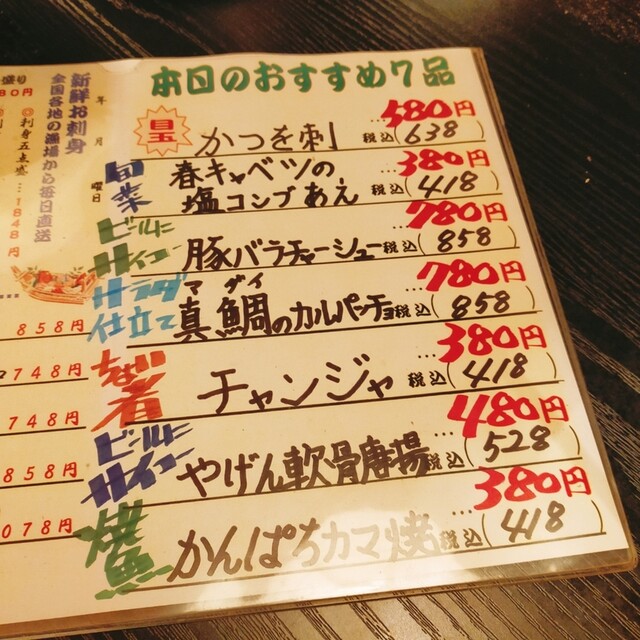 本日のおすすめ7品
目玉
かつを刺
…580円
税込(638)
旬菜
春キャベツの
塩コンブあえ
…380円
税込(418)
ビールに
サイコー
豚バラチャーシュー
…780円
税込(858)
サラダ
仕立て
マダイ
真鯛のカルパッチョ
…780円
税込(858)
チャンジャ
…380円
税込(418)
ビールに
サイコー
やげん軟骨唐揚
…480円
税込(528)
焼魚
かんぱちカマ焼
…380円
税込(418)
年 月 曜日
新鮮お刺身
全国各地の漁場から毎日直送
盛り
80円
刺身五点盛…1848円
858円
748円
748円
858円
078円